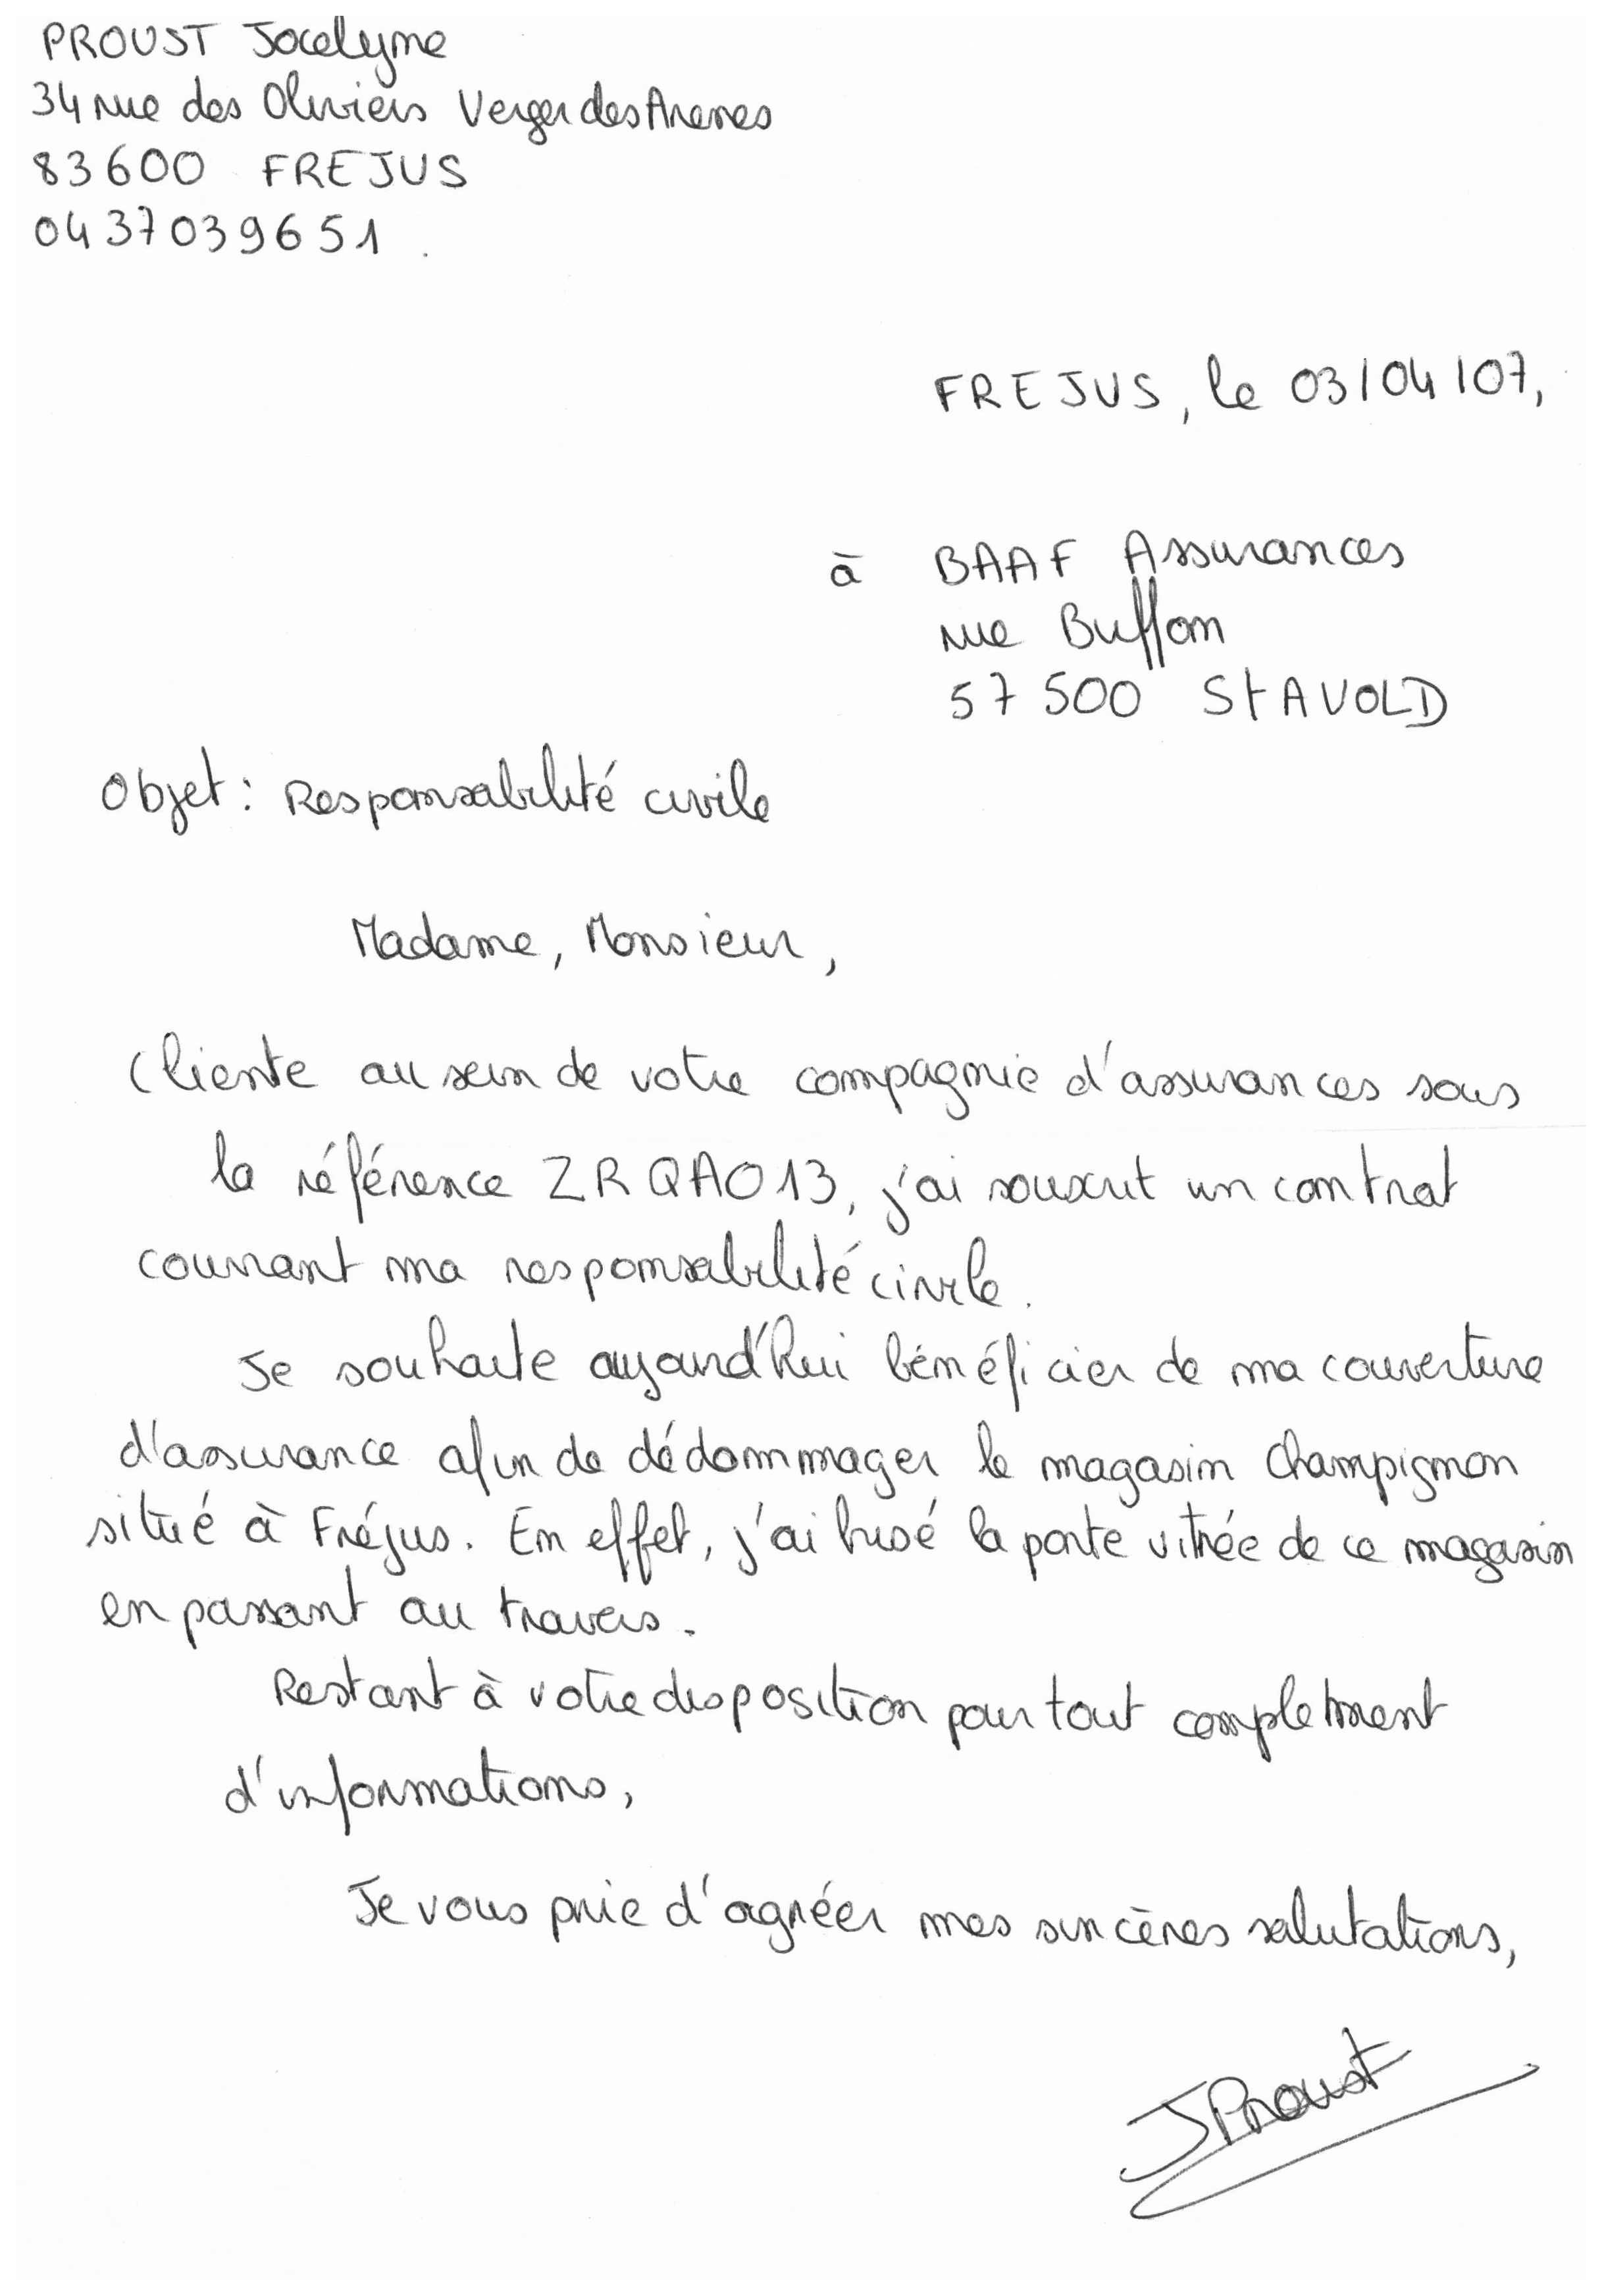 PROUST Jocelyne
34 rue des Oliviers Verger des Arenes
83600 FREJUS
0437039651.
FREJUS, le 03/04/07,
à BAAF Assurances
rue Buffon
57 500 St AVOLD
Objet : Responsabilité civile
Madame, Monsieur,
Cliente au sein de votre compagnie d'assurances sous
la référence ZRQAO13, j'ai souscrit un contrat
couvrant ma responsabilité civile.
Je souhaite aujourd'hui bénéficier de ma couverture
d'assurance afin de dédommager le magasin Champignon
situé à Fréjus. En effet, j'ai brisé la porte vitrée de ce magasin
en passant au travers.
Restant à votre disposition pour tout complement
d'informations,
Je vous prie d'agréer mes sincères salutations,
JProust